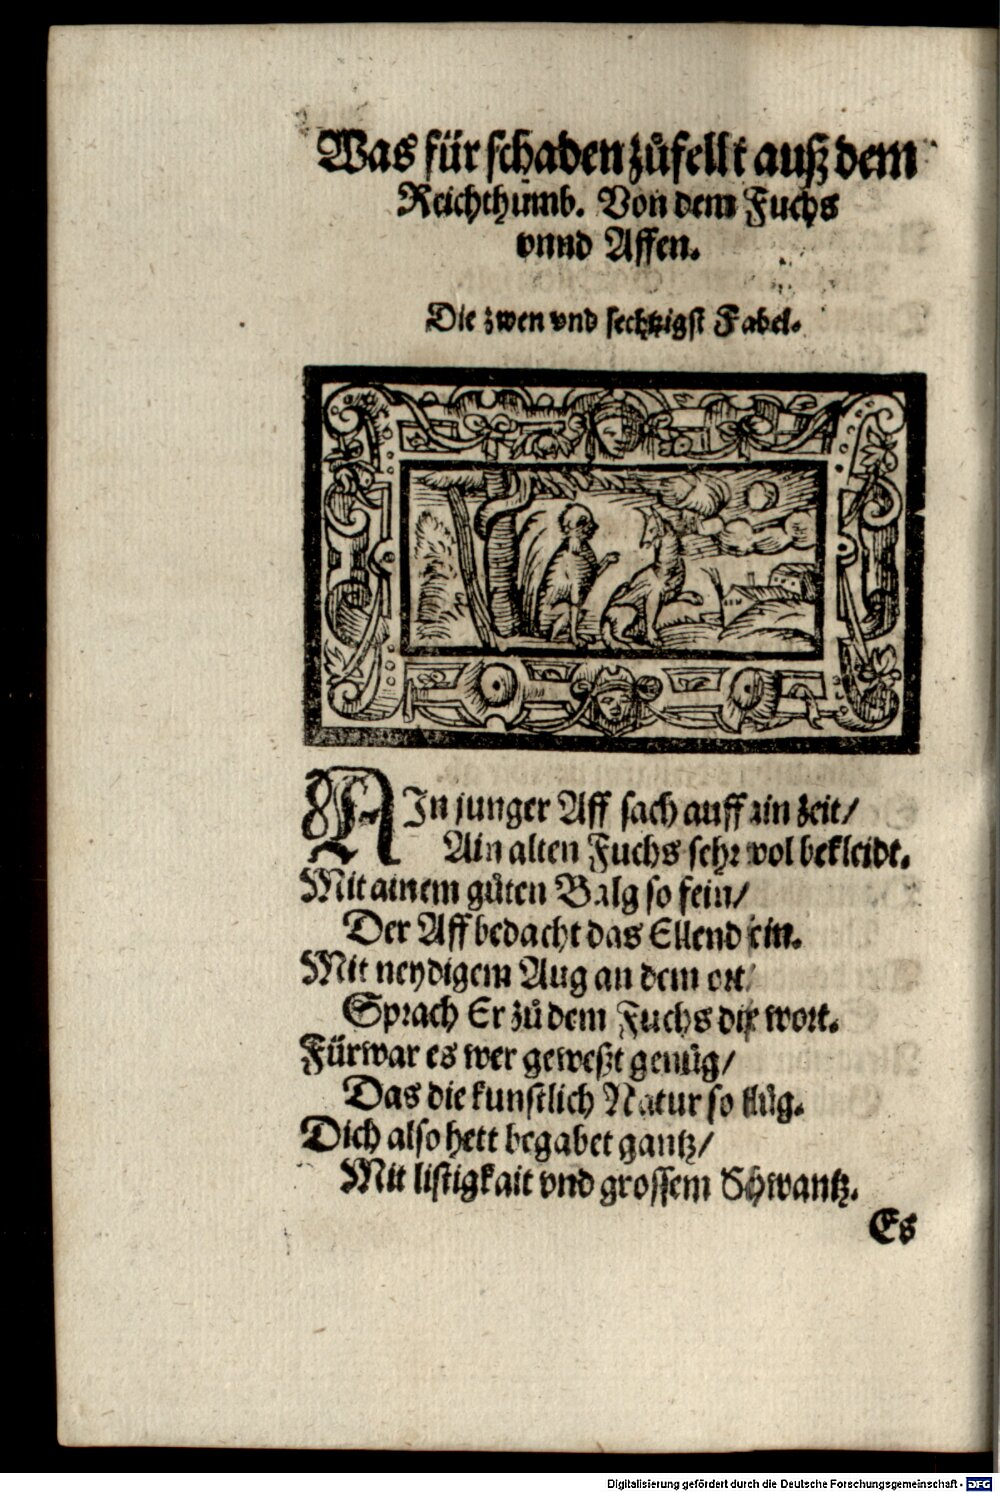 Was für schaden zůfellt auß dem
Reichthumb. Von dem Fuchs
vnnd Affen.
Die zwen vnd sechtzigst Fabel.
AIn junger Aff sach auff ain zeit/
Ain alten Fuchs sehr wol bekleidt.
Mit ainem gůten Balg so fein/
Der Aff bedacht das Ellend sein.
Mit neydigem Aug an dem ort/
Sprach Er zů dem Fuchs die wort.
Fürwar es wer geweßt genůg/
Das die kunstlich Natur so klůg.
Dich also hett begabet gantz/
Mit listigkait vnd grossem Schwantz.
Es
Digitalisierung gefördert durch die Deutsche Forschungsgemeinschaft - DFG